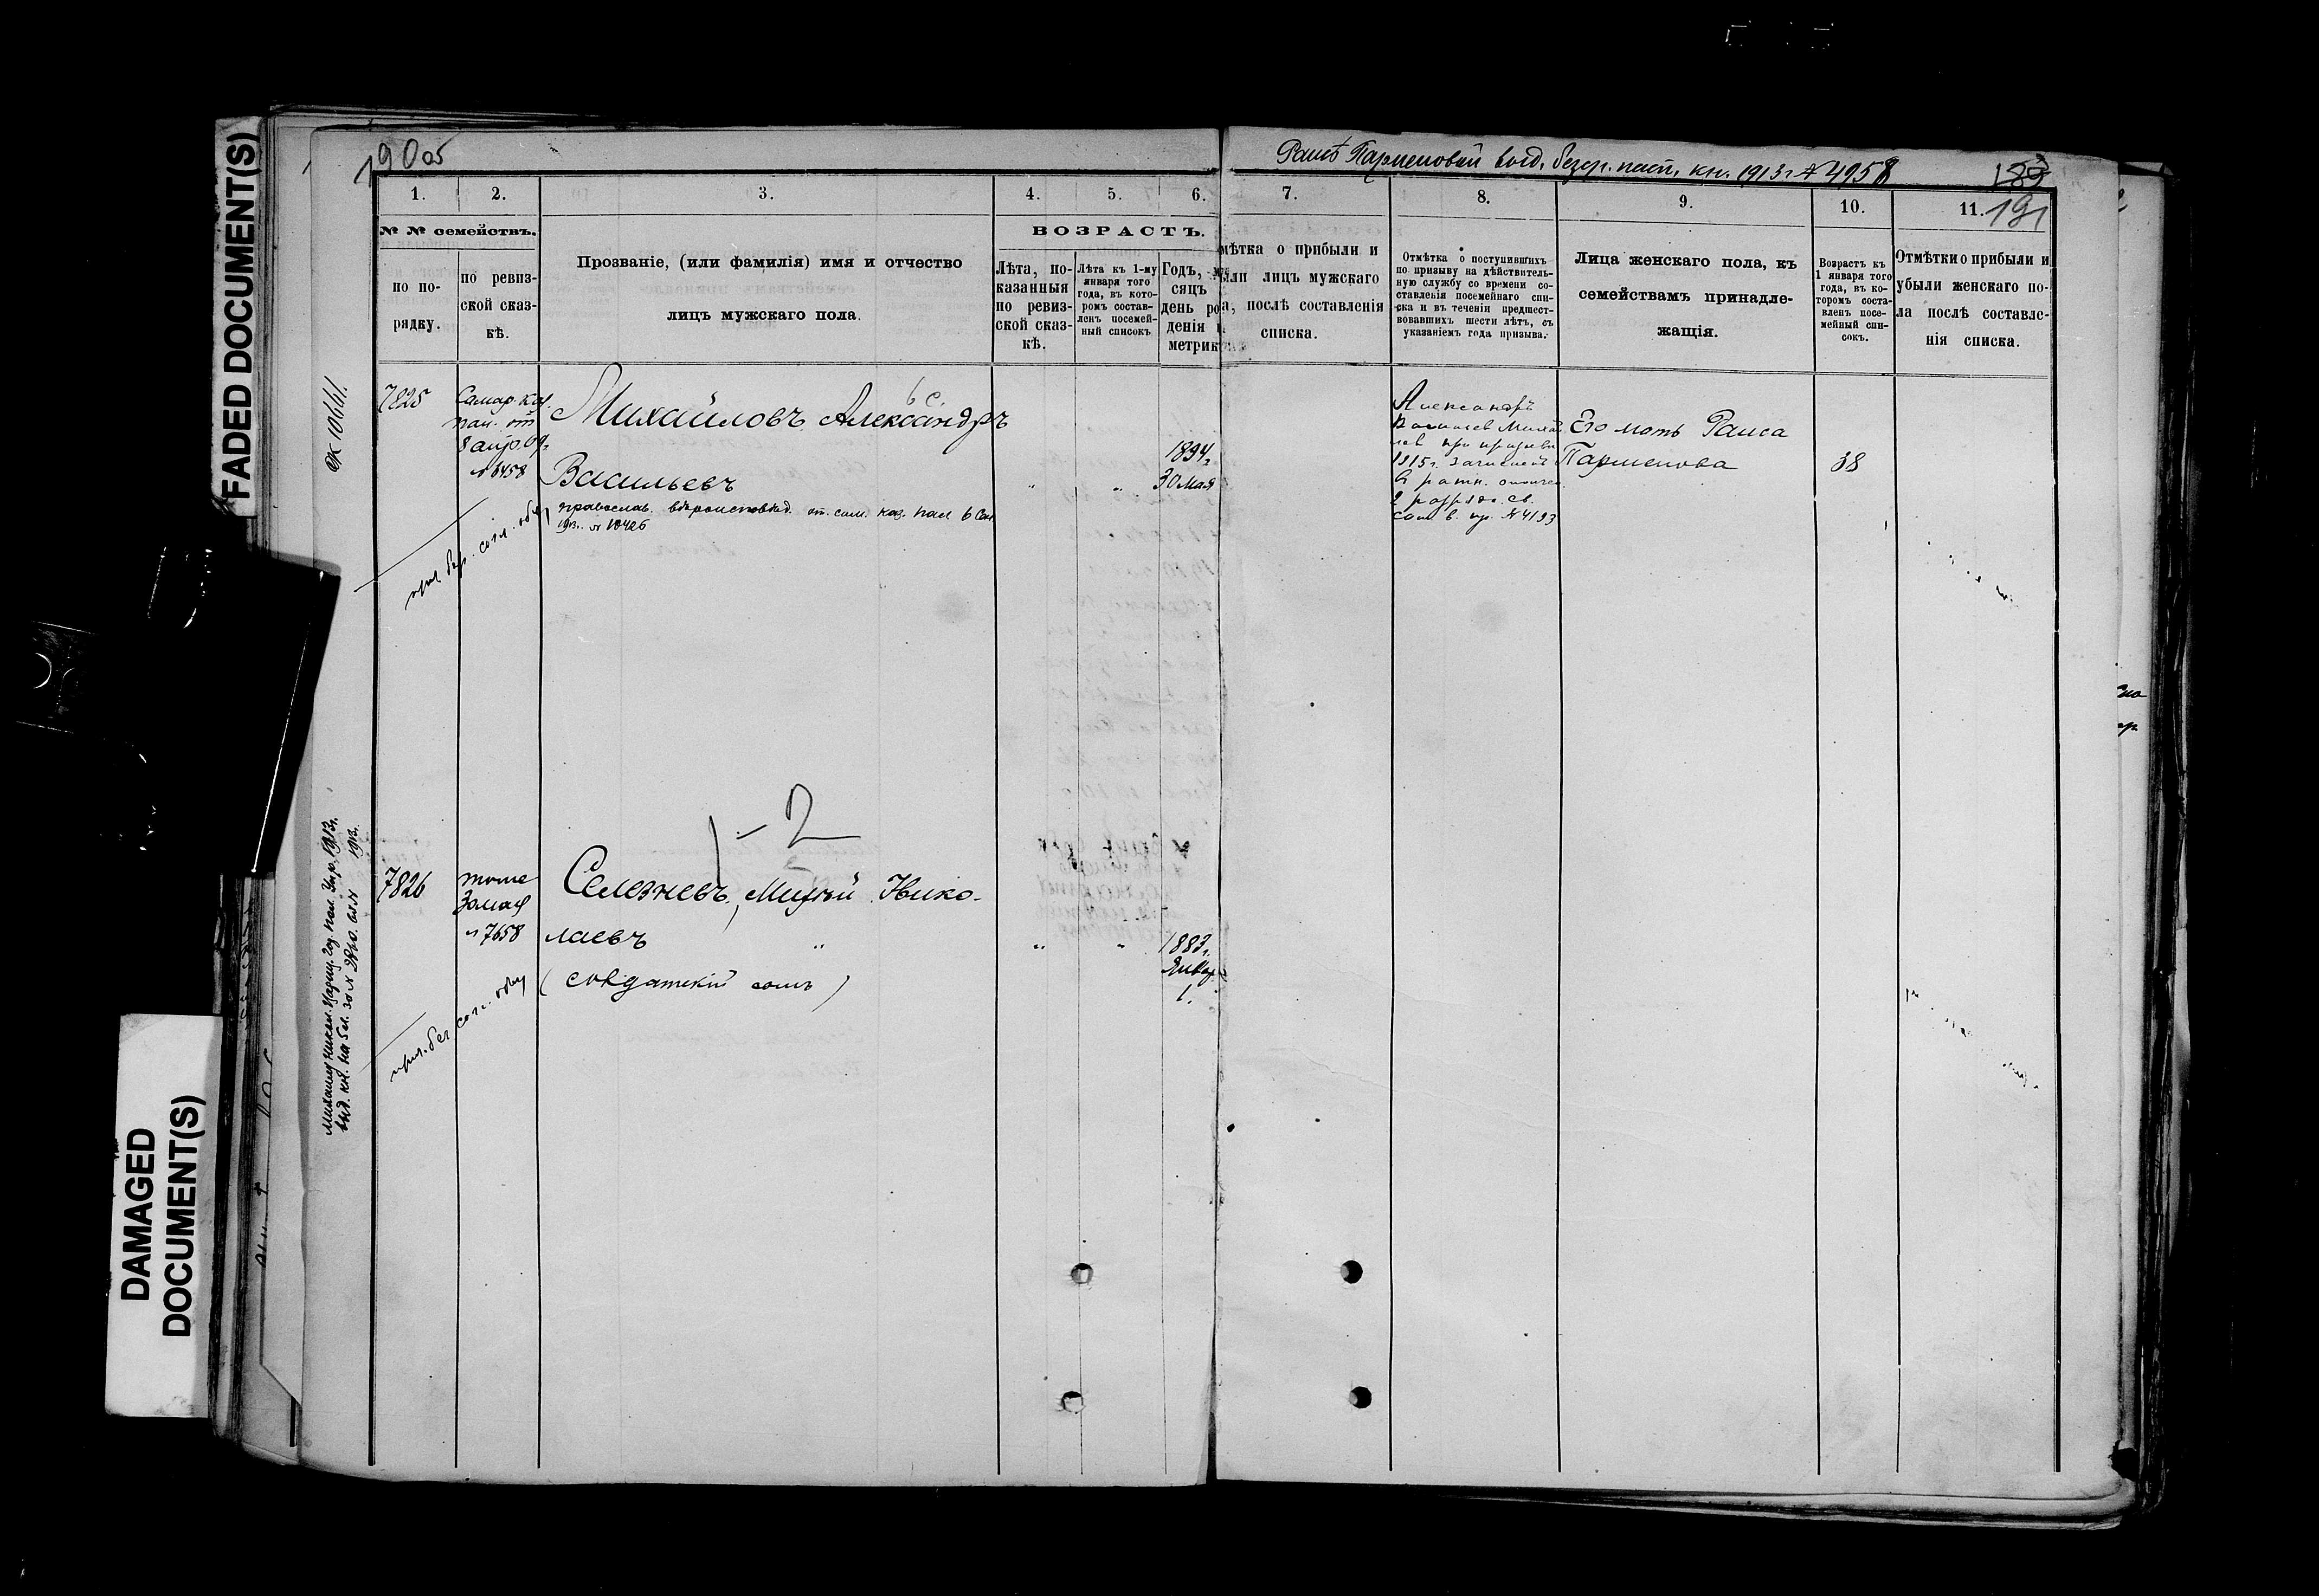 FADED DOCUMENT(S)
DAMAGED
DOCUMENT(S)
1900г
Раисѣ Парменовой выд. безср. пасп. кн. 1913 г № 4958
189
191
1. 2. 3. 4. 5. 6. 7. 8. 9. 10. 11.
№ № семействъ.
по по-
рядку.
по ревиз-
ской сказ-
кѣ.
Прозваніе, (или фамилія) имя и отчество
лицъ мужскаго пола.
ВОЗРАСТЪ.
Лѣта, по-
казанныя
по ревиз-
ской сказ-
кѣ.
Лѣта къ 1-му
января того
года, въ кото-
ромъ состав-
ленъ посемей-
ный списокъ
Годъ, мѣ-
сяцъ
день ро
денія и
метрик
мѣтка о прибыли и
ыли лицъ мужскаго
а, послѣ составленія
списка.
Отмѣтка о поступившихъ
по призыву на дѣйствитель-
ную службу со времени со-
ставленія посемейнаго спи-
ска и въ теченіи предшест-
вовавшихъ шести лѣтъ, съ
указаніемъ года призыва.
Лица женскаго пола, къ
семействамъ принадле-
жащія.
Возрастъ къ
1 января того
года, въ ко-
торомъ соста-
вленъ посе-
мейный спи-
сокъ.
Отмѣтки о прибыли и
убыли женскаго по-
ла послѣ составле-
нія списка.
10661.
7825
Самар. каз.
пал. от
8 апр. 09 г.
№ 6458
Михайловъ Александръ
Васильевъ
православ. вѣроисповѣд. от. сам. каз. пал 6 Сен.
1913 г. №
1894 г.
30 мая
Александръ
Васильев Михай
лов при призыве
1915 г. зачислен
в ратн. ополчен.
2 разряда. св.
№ 4193
Его мать Раиса
Парменова
38
1 - 2
7826
тоже
3 мая
№ 7658
Селезневъ, Николаевъ
(солдатскій сынъ)
1883 г.
Январ
1.